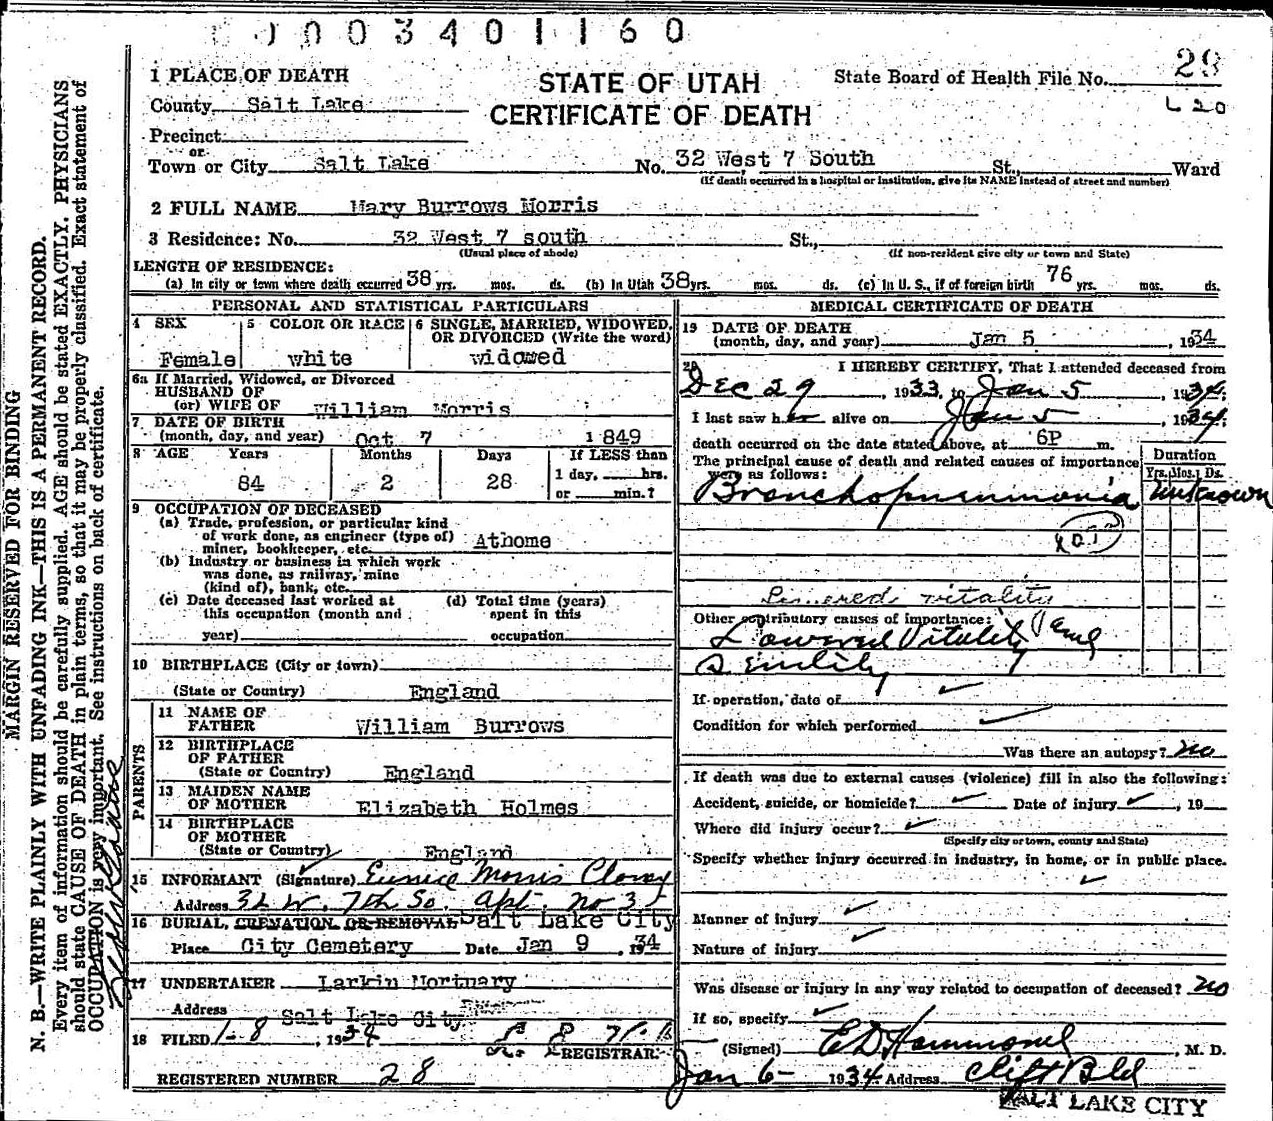 0003401160
1 PLACE OF DEATH
STATE OF UTAH
CERTIFICATE OF DEATH
State Board of Health File No. 28
L 20
County Salt Lake
Precinct
or
Town or City Salt Lake No. 32 West 7 South St., Ward
(If death occurred in a hospital or institution, give its NAME instead of street and number)
2 FULL NAME Mary Burrows Morris
3 Residence: No. 32 West 7 south St.,
(Usual place of abode) (If non-resident give city or town and State)
LENGTH OF RESIDENCE:
(a) In city or town where death occurred 38 yrs. mos. ds. (b) In Utah 38 yrs. mos. ds. (c) In U. S., if of foreign birth 76 yrs. mos. ds.
PERSONAL AND STATISTICAL PARTICULARS
4 SEX
Female
5 COLOR OR RACE
white
6 SINGLE, MARRIED, WIDOWED,
OR DIVORCED (Write the word)
widowed
6a If Married, Widowed, or Divorced
HUSBAND OF
(or) WIFE OF William Morris
7 DATE OF BIRTH
(month, day, and year) Oct 7 1849
8 AGE Years Months Days If LESS than
84 2 28 1 day, hrs.
or min.?
9 OCCUPATION OF DECEASED
(a) Trade, profession, or particular kind
of work done, as engineer (type of)
miner, bookkeeper, etc. Athome
(b) Industry or business in which work
was done, as railway, mine
(kind of), bank, etc.
(c) Date deceased last worked at (d) Total time (years)
this occupation (month and spent in this
year) occupation
10 BIRTHPLACE (City or town)
(State or Country) England
PARENTS
11 NAME OF
FATHER William Burrows
12 BIRTHPLACE
OF FATHER
(State or Country) England
13 MAIDEN NAME
OF MOTHER Elizabeth Holmes
14 BIRTHPLACE
OF MOTHER
(State or Country) England
15 INFORMANT (Signature) Eunice Morris
Address 32 W. 7th So. Apt. no 35
16 BURIAL, CREMATION OR REMOVAL Salt Lake City
Place City Cemetery Date Jan 9, 1934
17 UNDERTAKER Larkin Mortuary
Address Salt Lake City
18 FILED 1-8, 1934
REGISTRAR
REGISTERED NUMBER 28
MEDICAL CERTIFICATE OF DEATH
19 DATE OF DEATH
(month, day, and year) Jan 5, 1934
20 I HEREBY CERTIFY, That I attended deceased from
Dec 29, 1933, to Jan 5, 1934;
I last saw her alive on Jan 5, 1934;
death occurred on the date stated above, at 6P m.
The principal cause of death and related causes of importance
were as follows:
Duration
Yrs. Mos. Ds.
Bronchopneumonia Unknown
Lowered vitality
Other contributory causes of importance:
Lowered Vitality and
Senility
If operation, date of
Condition for which performed
Was there an autopsy? no
If death was due to external causes (violence) fill in also the following:
Accident, suicide, or homicide? Date of injury, 19
Where did injury occur?
(Specify city or town, county and State)
Specify whether injury occurred in industry, in home, or in public place.
Manner of injury
Nature of injury
Was disease or injury in any way related to occupation of deceased? no
If so, specify
(Signed) E D Hammond, M. D.
Jan 6- 1934 Address Clift Bld
SALT LAKE CITY
MARGIN RESERVED FOR BINDING
N. B.—WRITE PLAINLY WITH UNFADING INK—THIS IS A PERMANENT RECORD.
Every item of information should be carefully supplied. AGE should be stated EXACTLY. PHYSICIANS
should state CAUSE OF DEATH in plain terms, so that it may be properly classified. Exact statement of
OCCUPATION is very important. See instructions on back of certificate.